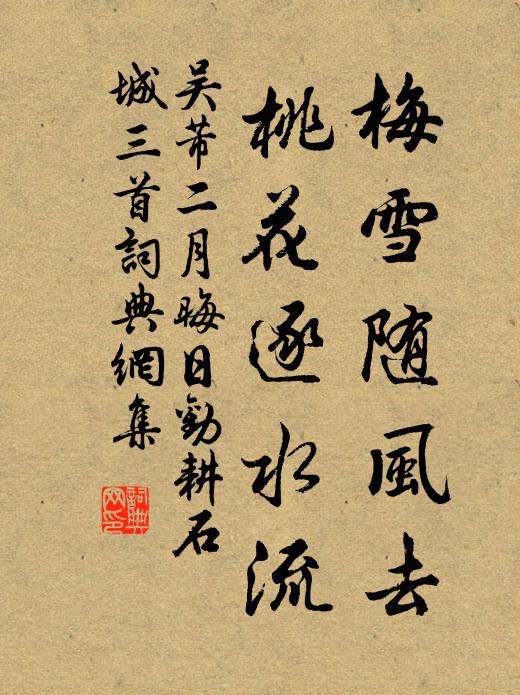 梅雪随風去
桃花逐水流
吴芾二月晦日勸耕石
城三首詞典網集
詞典
网印